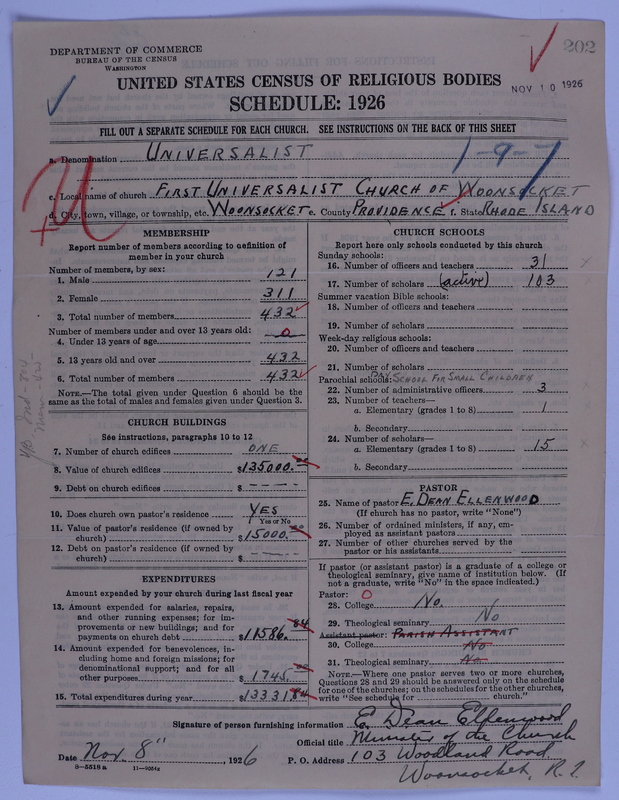 202
DEPARTMENT OF COMMERCE
BUREAU OF THE CENSUS
WASHINGTON
UNITED STATES CENSUS OF RELIGIOUS BODIES
NOV 10 1926
SCHEDULE: 1926
FILL OUT A SEPARATE SCHEDULE FOR EACH CHURCH. SEE INSTRUCTIONS ON THE BACK OF THIS SHEET
a. Denomination UNIVERSALIST
1-9-7
c. Local name of church FIRST UNIVERSALIST CHURCH OF WOONSOCKET
d. City, town, village, or township, etc. WOONSOCKET e. County PROVIDENCE f. State RHODE ISLAND
MEMBERSHIP
Report number of members according to definition of
member in your church
Number of members, by sex:
1. Male 121
2. Female 311
3. Total number of members 432
Number of members under and over 13 years old:
4. Under 13 years of age 0
5. 13 years old and over 432
6. Total number of members 432
NOTE.—The total given under Question 6 should be the
same as the total of males and females given under Question 3.
CHURCH BUILDINGS
See instructions, paragraphs 10 to 12
7. Number of church edifices ONE
8. Value of church edifices $135000.
9. Debt on church edifices $ ----
10. Does church own pastor's residence YES
Yes or No
11. Value of pastor's residence (if owned by
church) $15000.
12. Debt on pastor's residence (if owned by
church) $ ----
EXPENDITURES
Amount expended by your church during last fiscal year
13. Amount expended for salaries, repairs,
and other running expenses; for im-
provements or new buildings; and for
payments on church debt $11586.84
14. Amount expended for benevolences, in-
cluding home and foreign missions; for
denominational support; and for all
other purposes $1745.
15. Total expenditures during year $13331.84
CHURCH SCHOOLS
Report here only schools conducted by this church
Sunday schools:
16. Number of officers and teachers 31
17. Number of scholars (active) 103
Summer vacation Bible schools:
18. Number of officers and teachers
19. Number of scholars
Week-day religious schools:
20. Number of officers and teachers
21. Number of scholars
Parochial schools: DAY SCHOOL FOR SMALL CHILDREN
22. Number of administrative officers 3
23. Number of teachers—
a. Elementary (grades 1 to 8) 1
b. Secondary
24. Number of scholars—
a. Elementary (grades 1 to 8) 15
b. Secondary
PASTOR
25. Name of pastor E. DEAN ELLENWOOD
(If church has no pastor, write "None")
26. Number of ordained ministers, if any, em-
ployed as assistant pastors
27. Number of other churches served by the
pastor or his assistants
If pastor (or assistant pastor) is a graduate of a college or
theological seminary, give name of institution below. (If
not a graduate, write "No" in the space indicated.)
Pastor: O
28. College No.
29. Theological seminary No
Assistant pastor: PARISH ASSISTANT
30. College No
31. Theological seminary No
NOTE.—Where one pastor serves two or more churches,
Questions 28 and 29 should be answered only on the schedule
for one of the churches; on the schedules for the other churches,
write "See schedule for church."
Signature of person furnishing information E. Dean Ellenwood
Official title Minister of the Church
Date Nov. 8", 1926 P. O. Address 103 Woodland Road
8—5518 a 11—9054a Woonsocket, R. I.